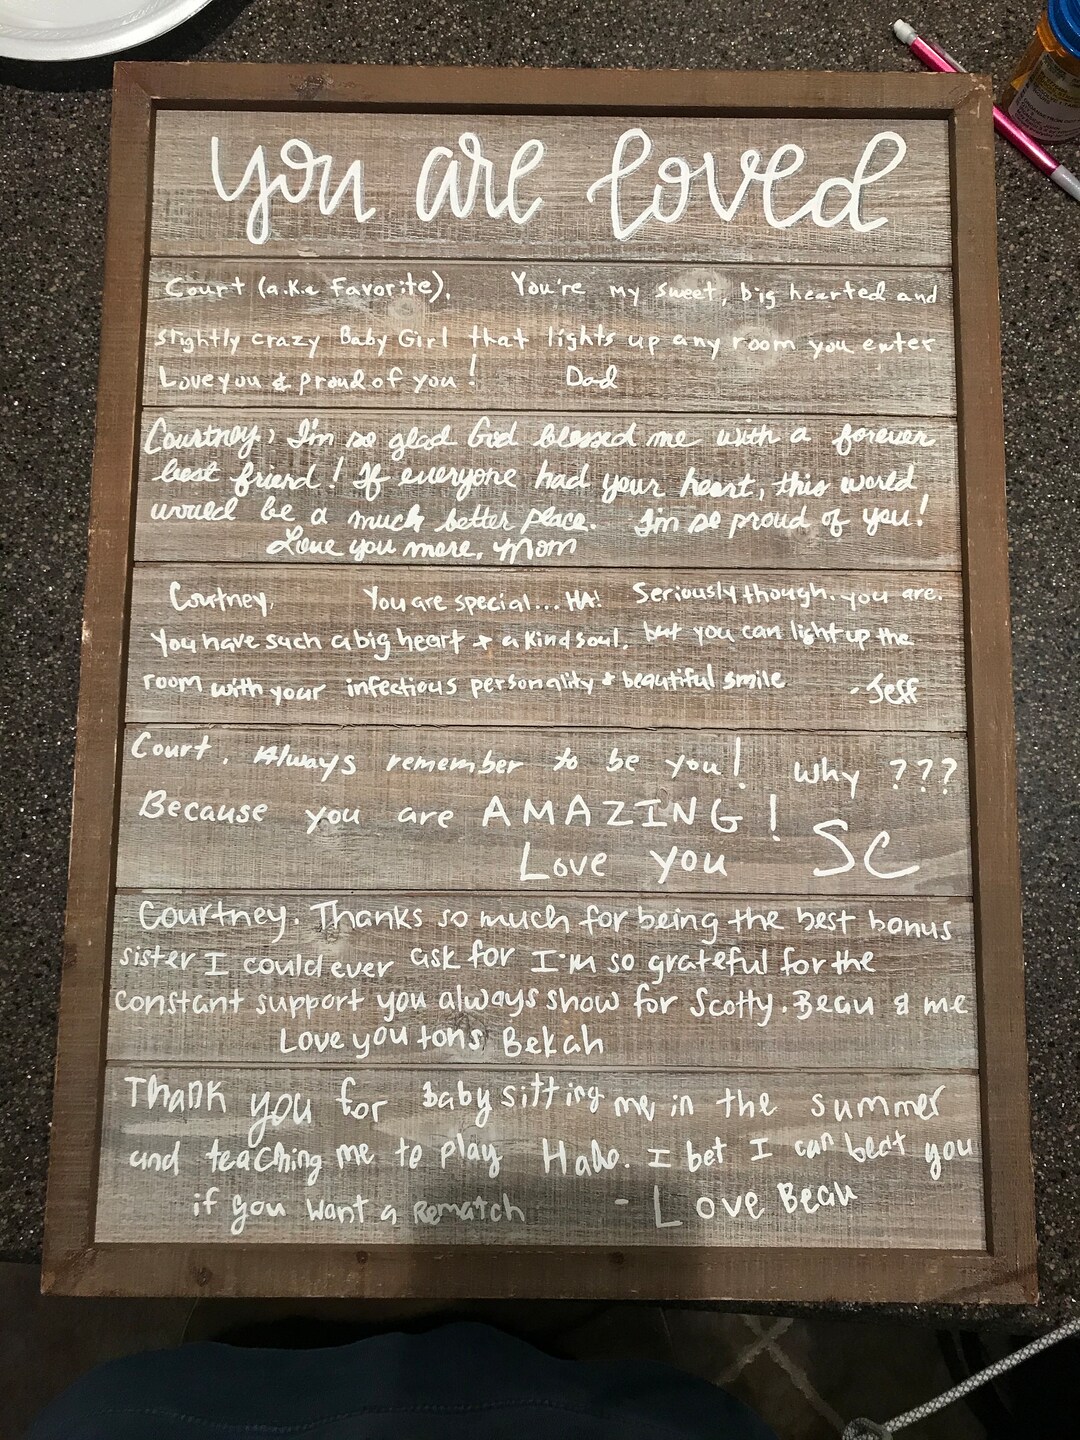 you are loved
Court (a.k.a Favorite), You're my sweet, big hearted and
slightly crazy Baby Girl that lights up any room you enter
Love you & proud of you! Dad
Courtney, I'm so glad God blessed me with a forever
best friend! If everyone had your heart, this world
would be a much better place. I'm so proud of you!
Love you more, Mom
Courtney, You are special... HA! Seriously though, you are.
You have such a big heart + a kind soul, but you can light up the
room with your infectious personality + beautiful smile - Jeff
Court, Always remember to be you! Why ???
Because you are AMAZING!
Love you SC
Courtney, Thanks so much for being the best bonus
sister I could ever ask for I'm so grateful for the
constant support you always show for Scotty, Beau & me
Love you tons Bekah
Thank you for babysitting me, in the summer
and teaching me to play Halo. I bet I can beat you
if you want a Rematch - Love Beau